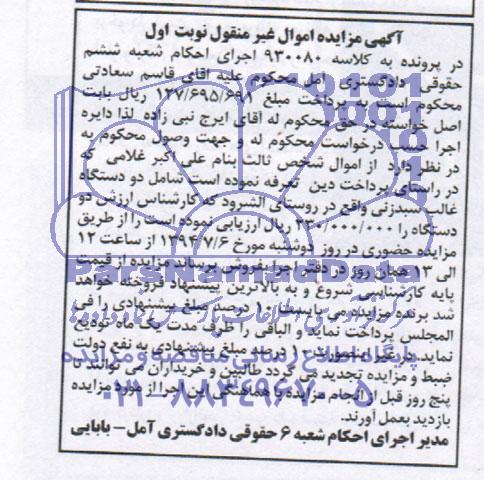 آگهی مزایده اموال غیر منقول نوبت اول
در پرونده به کلاسه ۹۳۰۰۸۰ اجرای احکام شعبه ششم
حقوقی دادگستری امل محکوم علیه آقای قاسم سعادتی
محکوم است به پرداخت مبلغ ۱۲۷/۶۹۵/۶۹۱ ریال بابت
اصل خواسته در حق محکوم له آقای ایرج نبی زاده لذا دایره
اجرا حسب درخواست محکوم له و جهت وصول محکوم به
در نظر دارد از اموال شخص ثالث بنام علی اکبر غلامی که
در راستای پرداخت دین تعرفه نموده است شامل دو دستگاه
غالب سبدزنی واقع در روستای الشرود که کارشناس ارزش دو
دستگاه را ۲۳۰/۰۰۰/۰۰۰ ریال ارزیابی نموده است را از طریق
مزایده حضوری در روز دوشنبه مورخ ۱۳۹۴/۷/۶ از ساعت ۱۲
الی ۱۳ همان روز در دفتر اجرا بفروش برساند مزایده از قیمت
پایه کارشناسی شروع و به بالاترین پیشنهاد فروخته خواهد
شد برنده مزایده می بایست ۱۰ درصد مبلغ پیشنهادی را فی
المجلس پرداخت نماید و الباقی را ظرف مدت یک ماه تودیع
نماید در غیر اینصورت ۱۰ درصد مبلغ پیشنهادی به نفع دولت
ضبط و مزایده تجدید می گردد طالبین و خریداران می توانند تا
پنج روز قبل از انجام مزایده با هماهنگی این اجرا از مورد مزایده
بازدید بعمل آورند.
مدیر اجرای احکام شعبه ۶ حقوقی دادگستری آمل - بابایی
ParsNamadData
پایگاه اطلاع رسانی مناقصه و مزایده
۰۲۱-۸۸۳۴۹۶۷۰-۵